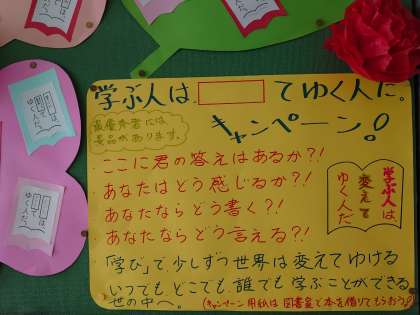 学ぶ人は、 てゆく人だ。
キャンペーン!
最優秀者には
景品があります。
ここに君の答えはあるか?!
あなたはどう感じるか?!
あなたならどう書く?!
あなたならどう言える?!
学ぶ人は、
変えて
ゆく人だ
「学び」で少しずつ世界は変えてゆける
いつでもどこでも誰でも学ぶことができる
世の中へ。
(キャンペーン用紙は図書室で本を借りてもらおう♪)